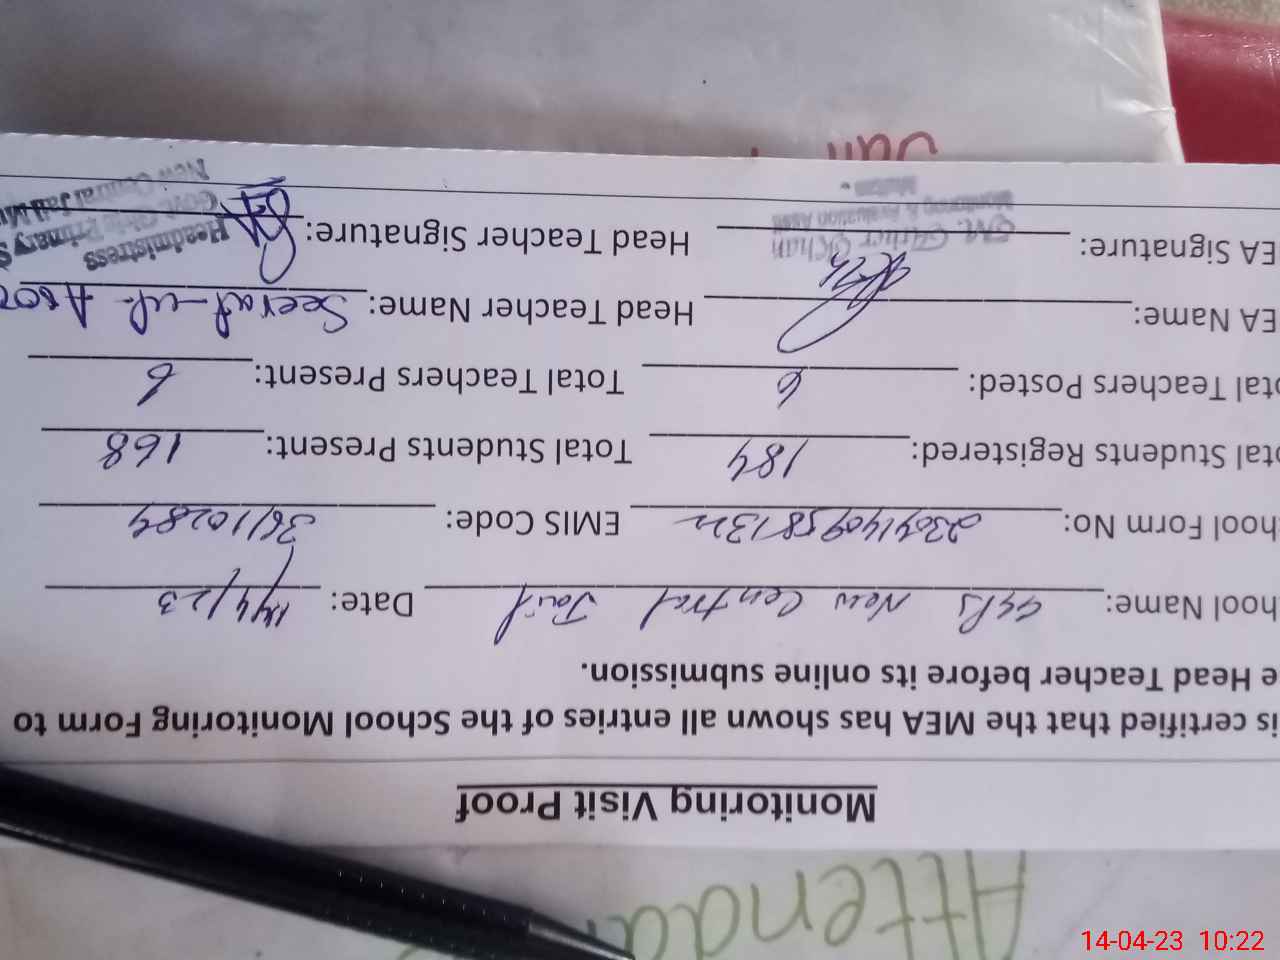 Attenda
Monitoring Visit Proof
is certified that the MEA has shown all entries of the School Monitoring Form to
e Head Teacher before its online submission.
hool Name: GGPS New Central Jail Date: 14/4/23
hool Form No: EMIS Code: 36110284
otal Students Registered: 184 Total Students Present: 168
otal Teachers Posted: 6 Total Teachers Present: 6
EA Name: Head Teacher Name:
EA Signature: Head Teacher Signature:
Monitoring & Evaluation Assis
Multan
Headmistress
Govt. Girls Primary S
New Central Jail Mu
14-04-23 10:22